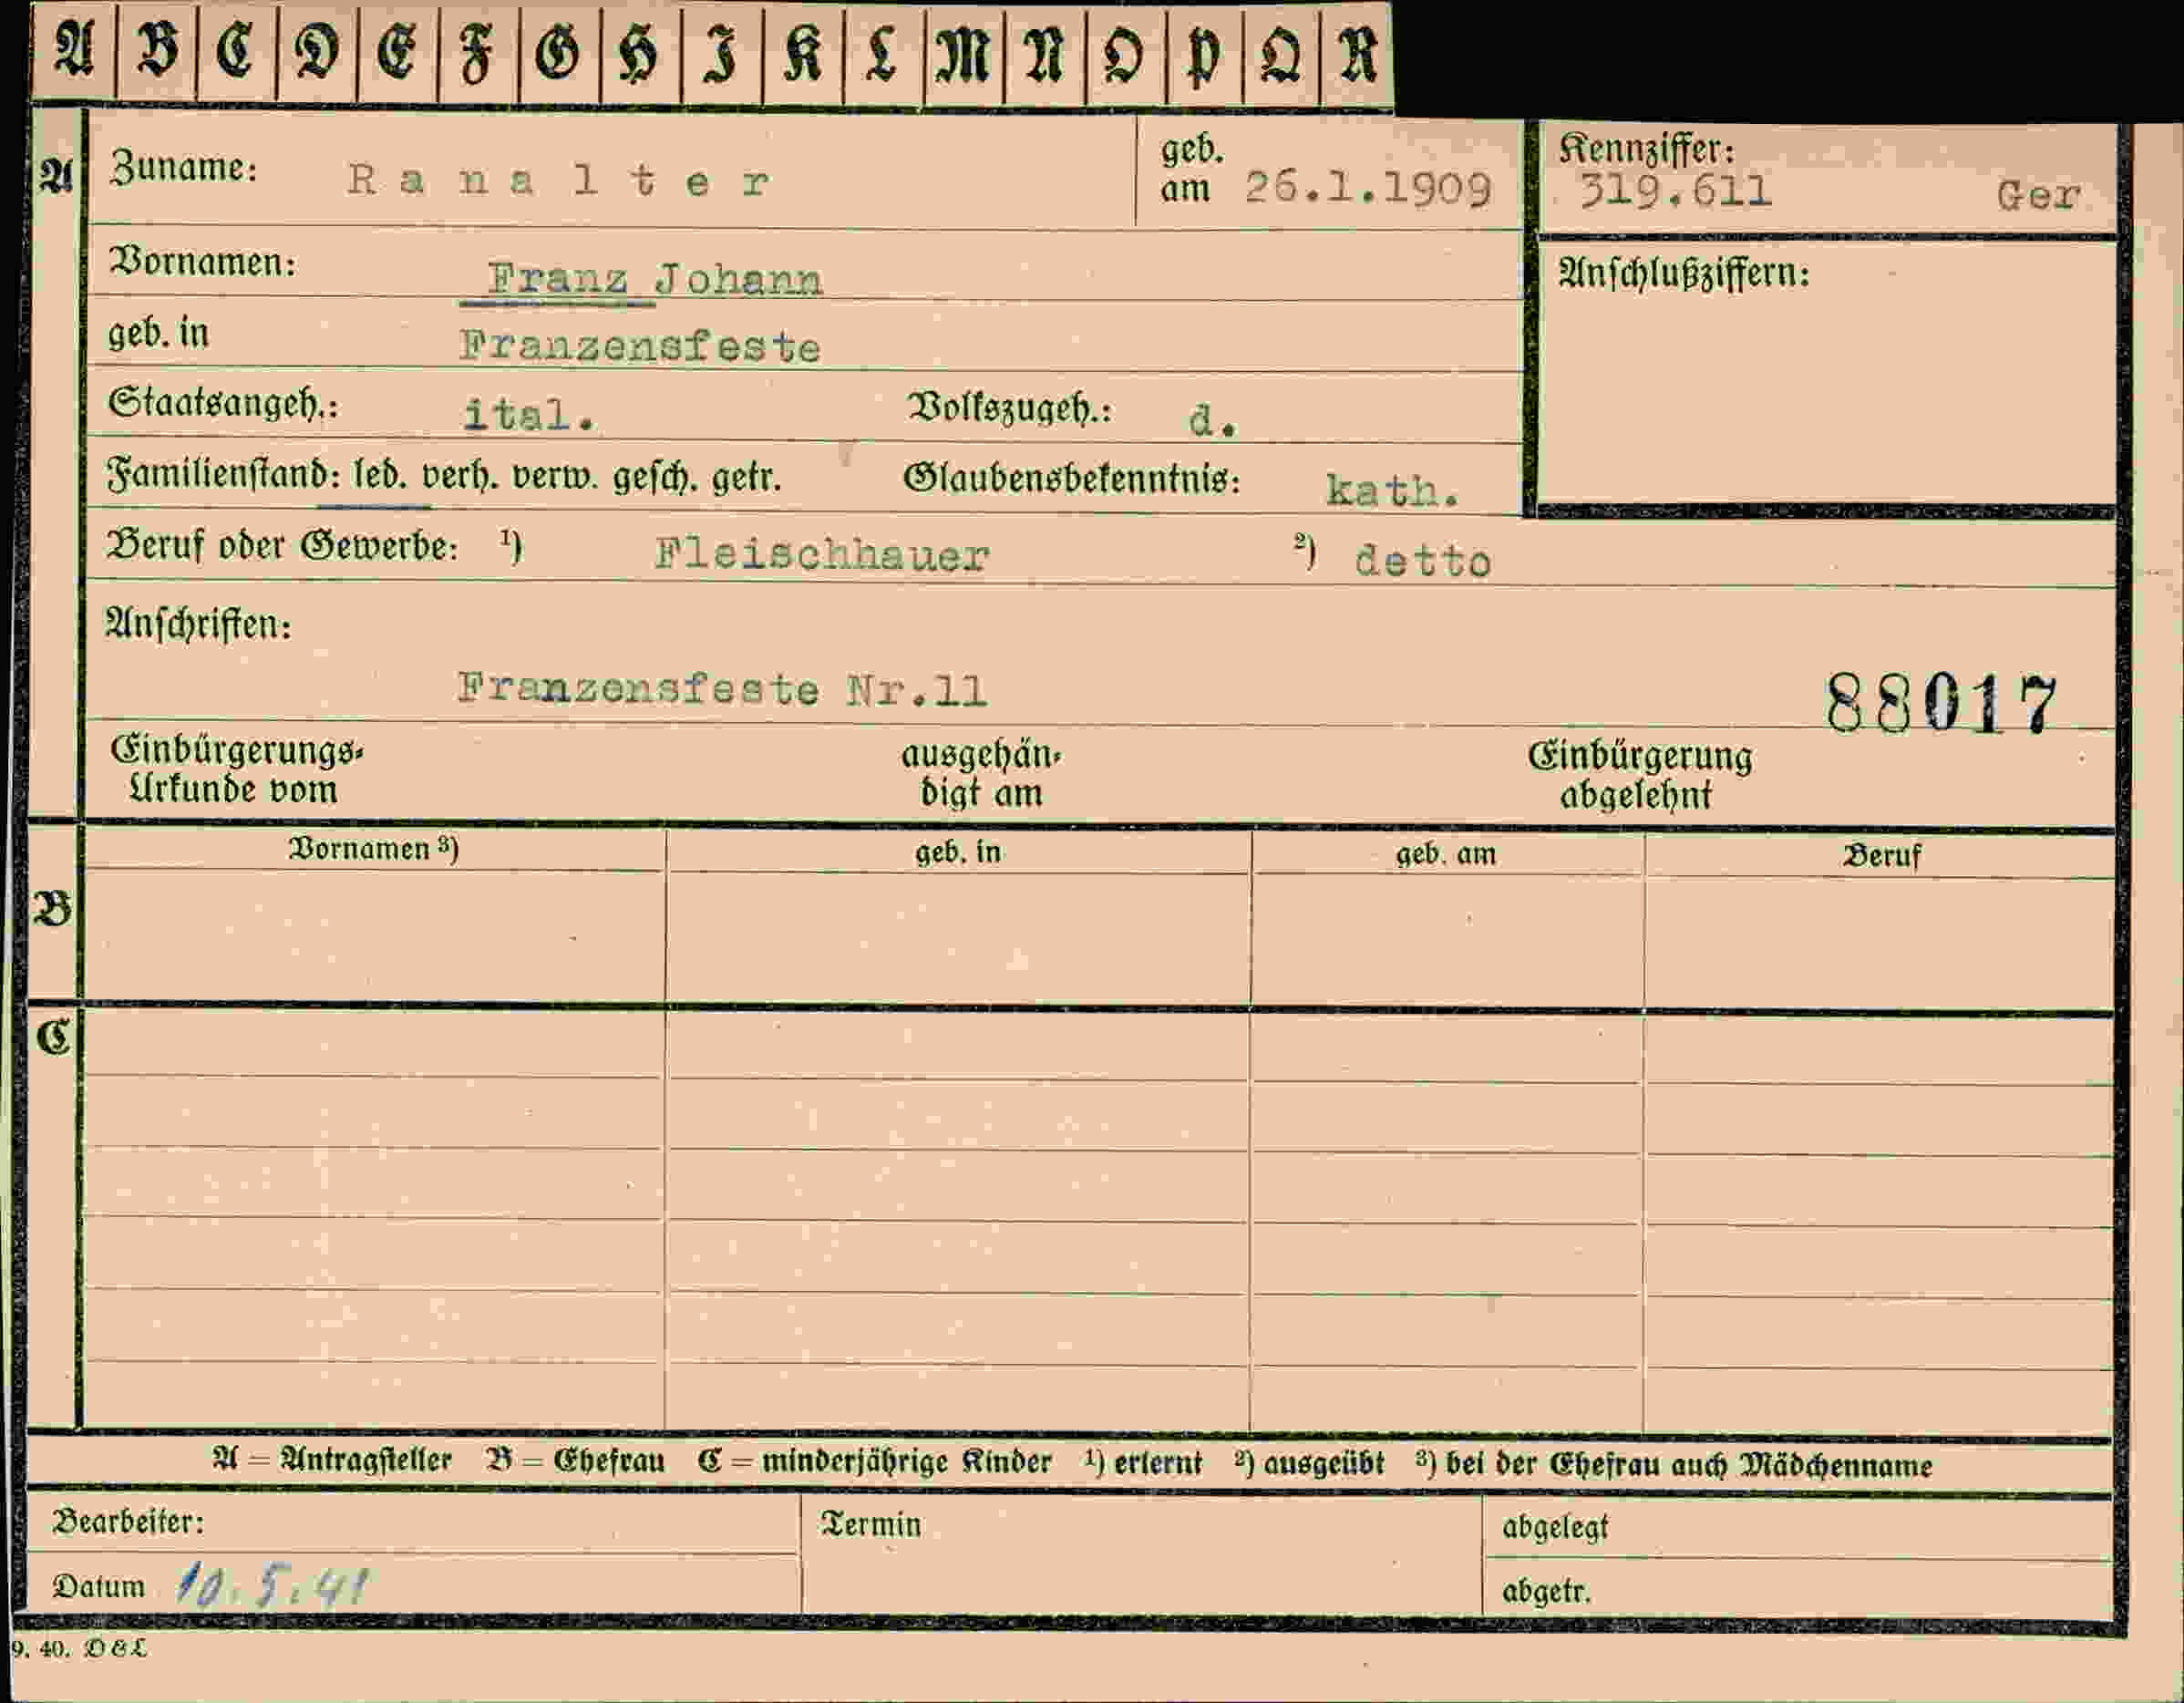 A B C D E F G H I K L M N O P Q R
A Zuname: Ranalter geb. am 26.1.1909 Kennziffer: 319.611 Ger
Vornamen: Franz Johann Anschlußziffern:
geb. in Franzensfeste
Staatsangeh.: ital. Volkszugeh.: d.
Familienstand: led. verh. verw. gesch. getr. Glaubensbekenntnis: kath.
Beruf oder Gewerbe: 1) Fleischhauer 2) detto
Anschriften:
Franzensfeste Nr.11 88017
Einbürgerungs- ausgehän- Einbürgerung
Urkunde vom digt am abgelehnt
Vornamen 3) geb. in geb. am Beruf
B
C
A = Antragsteller B = Ehefrau C = minderjährige Kinder 1) erlernt 2) ausgeübt 3) bei der Ehefrau auch Mädchenname
Bearbeiter: Termin abgelegt
Datum 10.5.41 abgetr.
9. 40. D&L